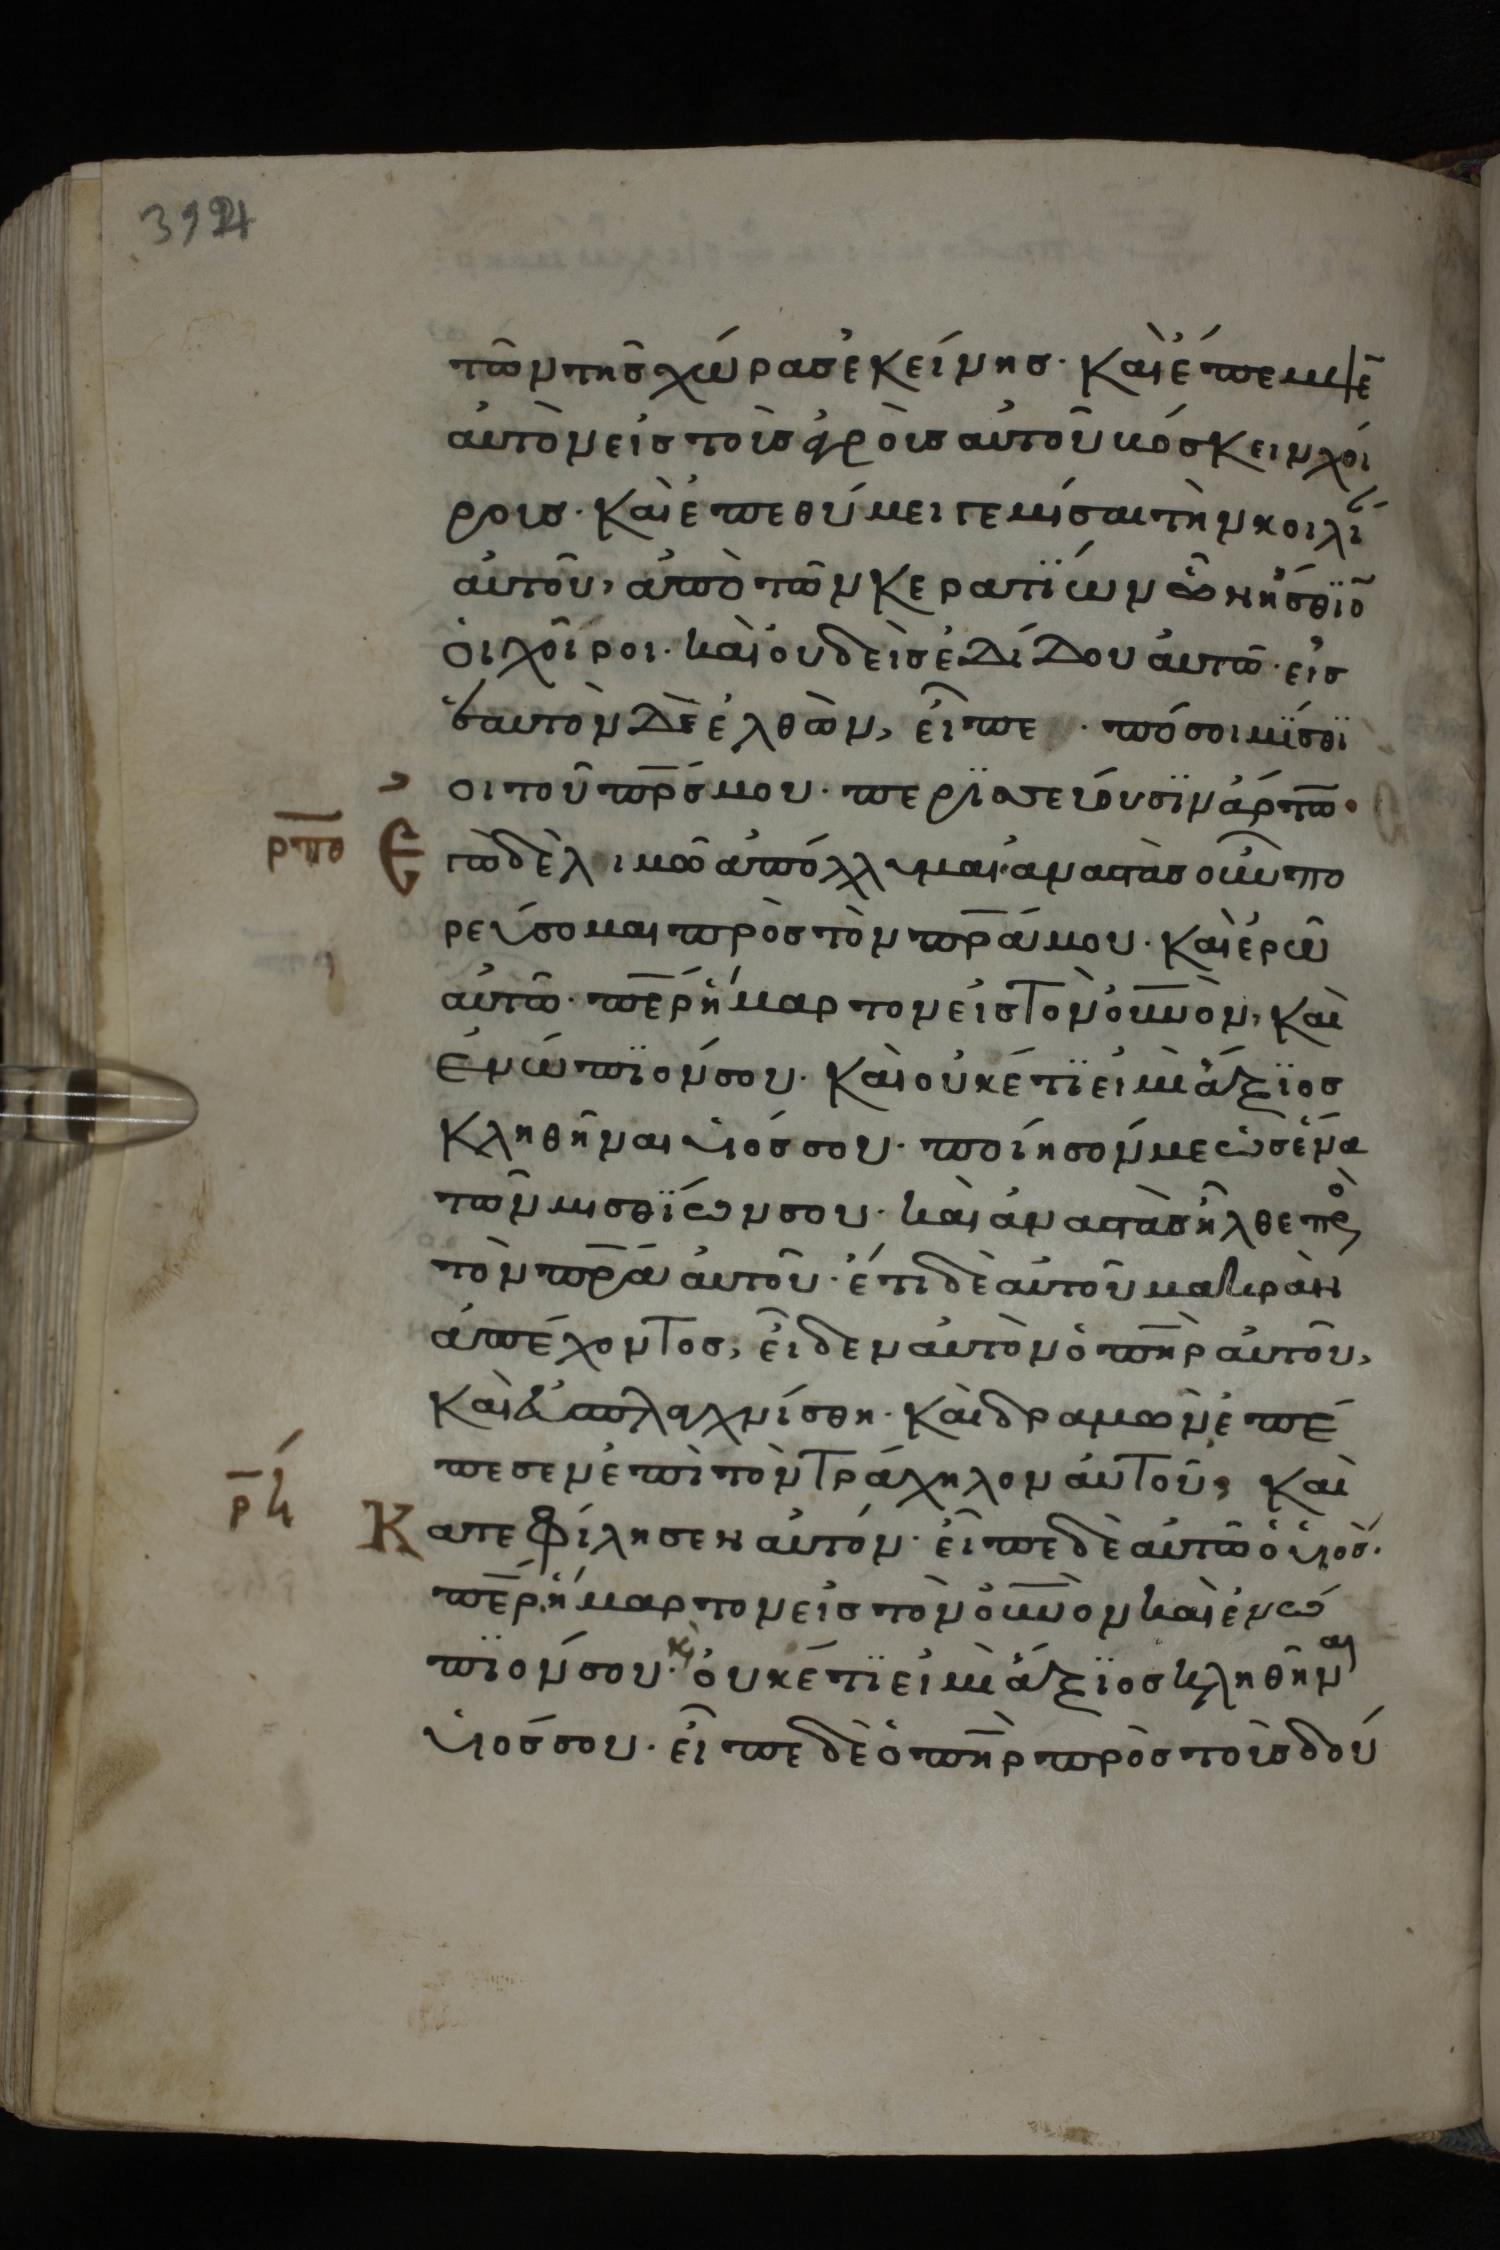 3924
τῶν τῆς χώρας ἐκείνης· καὶ ἔπεμψε
αὐτὸν εἰς τοὺς ἀγροὺς αὐτοῦ βόσκειν χοί
ρους· καὶ ἐπεθύμει γεμίσαι τὴν κοιλί
αὐτοῦ, ἀπὸ τῶν κερατϊων ὧν ἤσθϊο
οἱ χοῖροι· καὶ οὐδεὶς ἐδίδου αὐτῶ· εἰς
ἑαυτὸν δὲ ἐλθὼν, εἶπε · πόσοι μΐσθϊ
οι τοῦ πρς μου· περϊσσεύουσϊν ἄρτω·
ρπθ Ἐγὼ δὲ λιμῶ ἀπόλλυμαι· ἀναστὰς οὖν πο
ρεύσομαι πρὸς τὸν πρα μου· καὶ ἐρῶ
αὐτῶ· περ ἥμαρτον εἰς τὸν οὐνὸν, καὶ
ἐνώπϊόν σου· καὶ οὐκέτϊ εἰμὶ ἄξϊος
κληθῆναι υἱός σου· ποίησόν με ὡς ἕνα
τῶν μισθϊων σου· καὶ ἀναστὰς ἦλθε πρὸς
τὸν πρα αὐτοῦ· ἔτι δὲ αὐτοῦ μακρὰν
ἀπέχοντος, εἶδεν αὐτὸν ὁ πηρ αὐτοῦ,
καὶ ἐσπλαγχνίσθη· καὶ δραμὼν ἐπέ
πεσεν ἐπὶ τὸν τράχηλον αὐτοῦ, καὶ
ρϟ Κατεφίλησεν αὐτόν· εἶπε δὲ αὐτῶ ὁ υἱός·
περ ἥμαρτον εἰς τὸν οὐνὸν καὶ ἐνώ
πϊόν σου· κὶ οὐκέτϊ εἰμὶ ἄξϊος κληθῆναι
υἱός σου· εἶπε δὲ ὁ πηρ πρὸς τοὺς δού